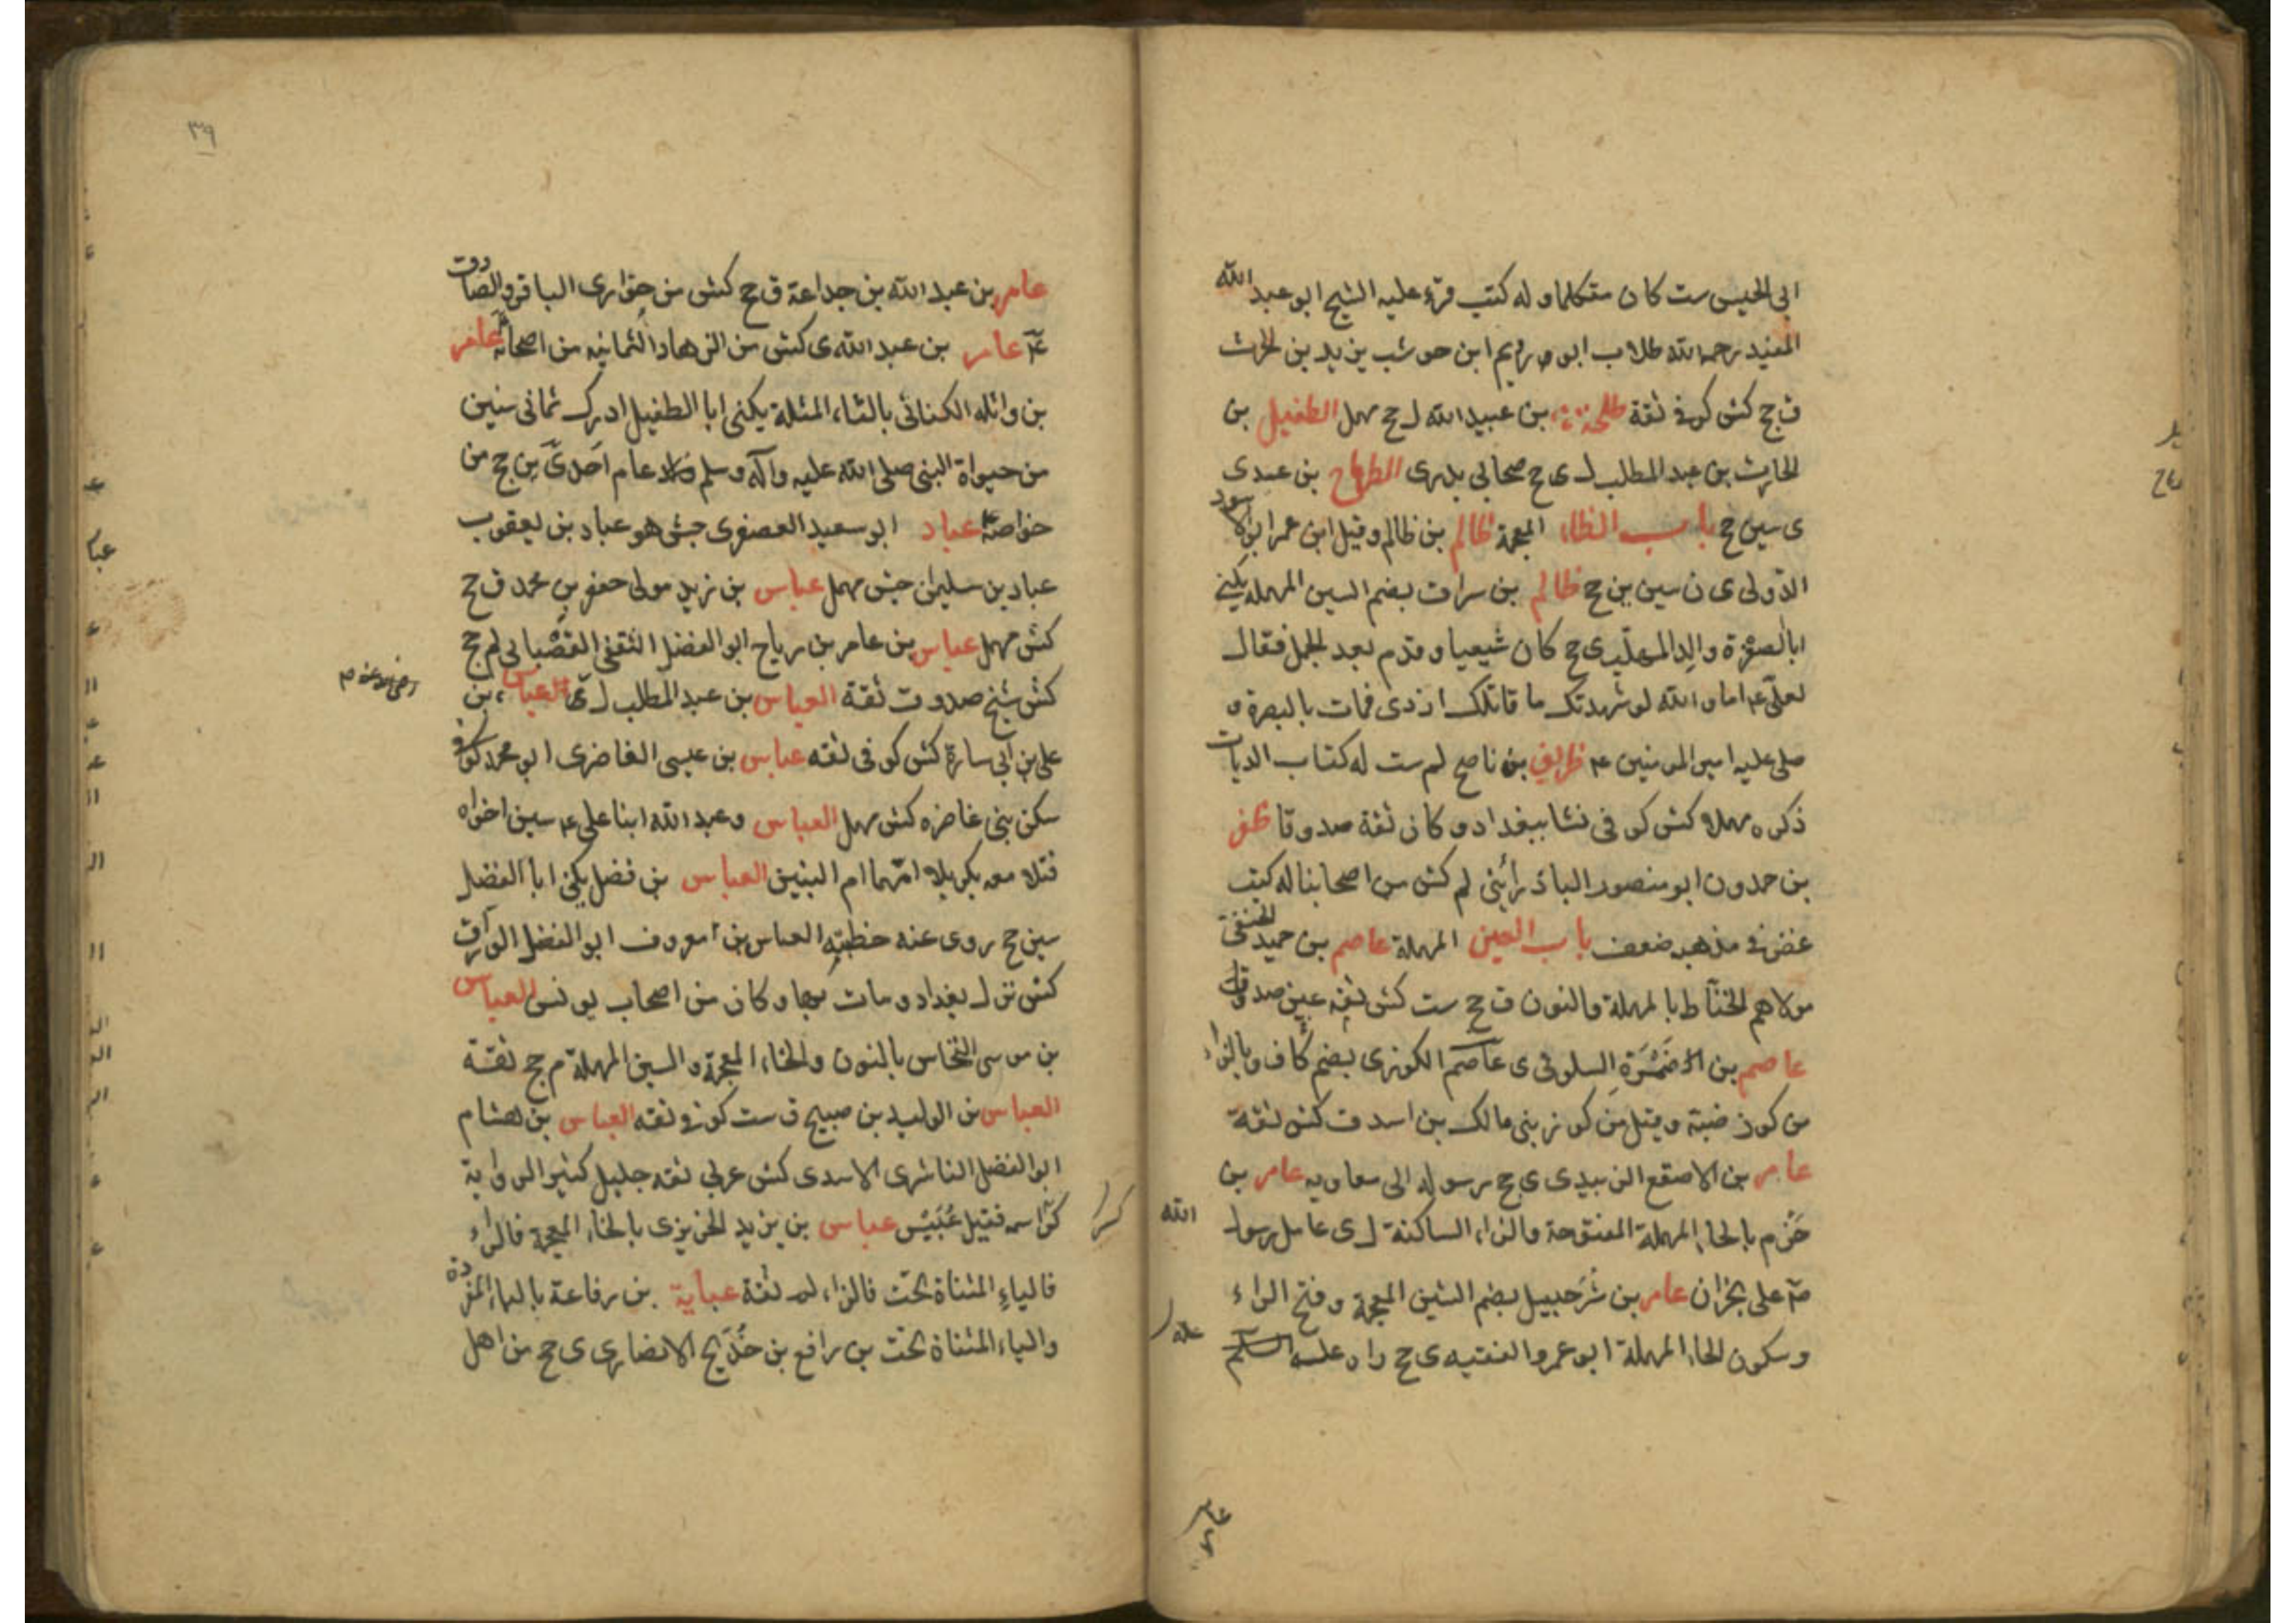 ابى الجيس ست كان متكلما وله كتب قرء عليه الشيخ ابو عبد الله
المفيد رحمه الله طلاب ابو مريم ابن حوشب يزيد بن الحرث
ق جح كش كوفى ثقة طلحة بن عبيد الله ل جح مهمل الطفيل بن
الحارث بن عبد المطلب ل ى جح صحابى بدرى الطرماح بن عدى
ى سين جح باب الظاء المعجمة ظالم بن ظالم وقيل ابن عمر ابو الاسود
الدؤلى ى ن سين ين جح ظالم بن سراق بضم السين المهملة يكنى
ابا لصفرة والد المهلب ى جح كان شيعيا وقدم بعد الجمل فقال
لعلى ع اما والله لو شهدتك ما قاتلك ازدى فمات بالبصرة و
صلى عليه امير المومنين ع ظريف بن ناصح لم ست له كتاب الديات
ذكره مهملا كش كوفى نشا ببغداد وكان ثقة صدوقا ظفر
بن حمدون ابو منصور البادرائنى لم كش من اصحابنا له كتب
غض فى مذهبه ضعف باب العين المهملة عاصم بن حميد الحنفى
مولاهم الحناط بالمهملة والنون ق جح ست كش ثقه عين صدوق
عاصم بن ضمرة السلولى ى عاصم الكوزى بضم كاف وبالزاء
من كوز ضبة وقيل من كوز بنى مالك بن اسد ق كش ثقة
عامر بن الاصقع الزبيدى ى جح رسوله الى معاويه عامر بن
حزم بالحاء المهملة المفتوحة والزاء الساكنة ل ى عامل رسول الله
ص على نجران عامر بن شرحبيل بضم الشين المعجمة وفتح الراء
وسكون الحاء المهملة ابو عمرو الفقيه ى جح راه عليه السلم
عامر
٣٩
عامر بن عبد الله بن جداعة ق جح كش من حوارى الباقر والصادق
ع عامر بن عبد الله ى كش من الزهاد الثمانيه من اصحابه عامر
بن واثله الكنانى بالثاء المثلثة يكنى ابا الطفيل ادرك ثمانى سنين
من حيواة النبى صلى الله عليه وآله وسلم ولد عام احد ى ين جح من
خواصه عباد ابو سعيد العصفرى جش هو عباد بن يعقوب
عباد بن سليمان جش مهمل عباس بن زيد مولى جعفر بن محمد ق جح
كش مهمل عباس بن عامر بن رباح ابو الفضل الثقفى القصبانى لم جح
كش شيخ صدوق ثقة العباس بن عبد المطلب ل العباس بن
على بن ابى سارة كش كوفى ثقه عباس بن عيسى الغاضرى ابو محمد كوفى
سكن بنى غاضره كش مهمل العباس وعبد الله ابنا على ع سين اخواه
قتلا معه بكربلا امهما ام البنين العباس بن فضل يكنى ابا الفضل
سين جح روى عنه خطبته العباس بن معروف ابو الفضل الوراق
كش نزل بغداد ومات بها وكان من اصحاب يونس العباس
بن موسى النخاس بالنون والخاء المعجمة والسين المهملة م جح ثقة
العباس بن الوليد بن صبيح ق ست كوفى ثقه العباس بن هشام
ابو الفضل الناشرى الاسدى كش عربى ثقه جليل كثير الرواية
كسر اسمه فقيل عبيس عباس بن يزيد الخريزى بالخاء المعجمة فالراء
فالياء المثناة تحت فالزاء لم ثقة عباية بن رفاعة بالباء المفردة
والياء المثناة تحت بن رافع بن خديج الانصارى ى جح من اهل